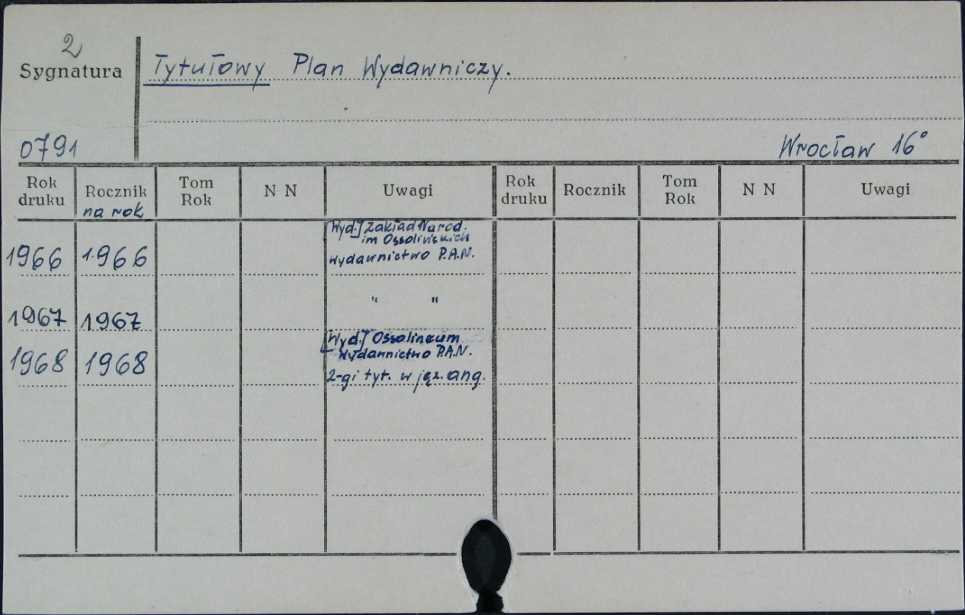 2
Sygnatura
Tytułowy Plan Wydawniczy.
0791
Wrocław 16°
Rok druku Rocznik na rok Tom Rok N N Uwagi Rok druku Rocznik Tom Rok N N Uwagi
[Wyd.] Zakład Narod.
im Ossolińskich
1966 1966 Wydawnictwo P.A.N.
" "
1967 1967
[Wyd.] Ossolineum
1968 1968 Wydawnictwo P.A.N.
2-gi tyt. w jęz. ang.